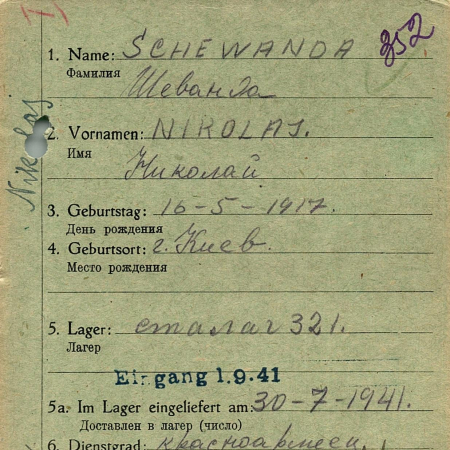 352
1. Name: SCHEWANDA
Фамилия
Шеванда
Nikolaj
2. Vornamen: NIKOLAJ.
Имя
Николай
3. Geburtstag: 16-5-1917.
День рождения
4. Geburtsort: г. Киев.
Место рождения
5. Lager: сталаг 321.
Лагер
Eingang 1.9.41
5a. Im Lager eingeliefert am: 30-7-1941.
Доставлен в лагер (число)
6. Dienstgrad: красноармеец,